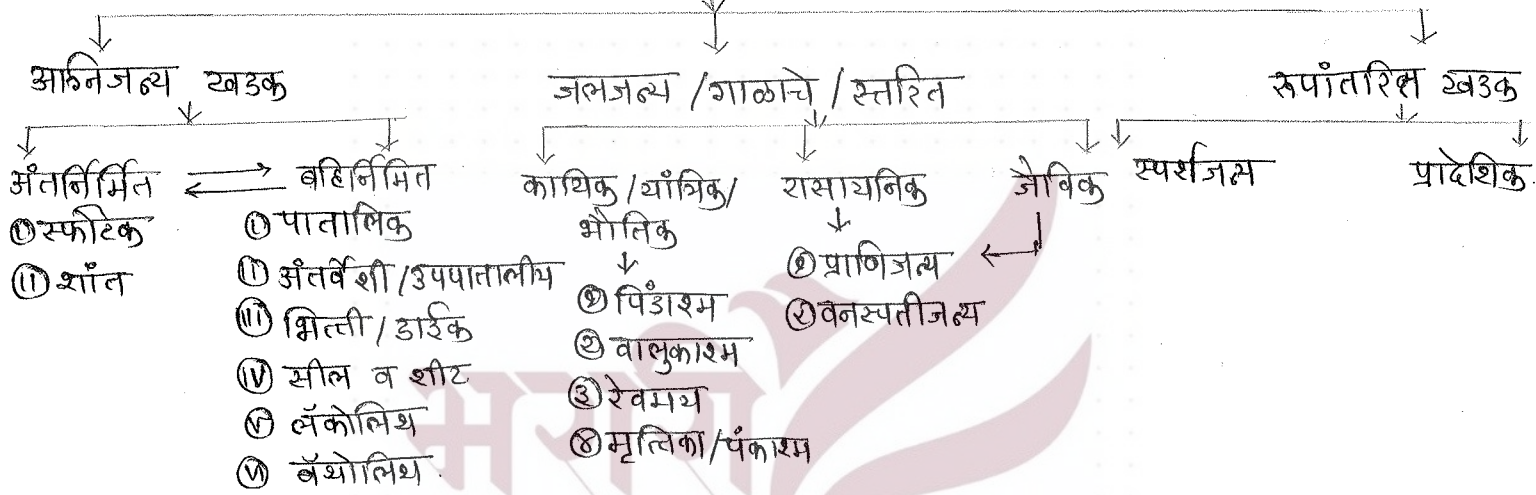 अग्निजन्य खडक
जलजन्य / गाळाचे / स्तरित
रूपांतरित खडक
अंतर्निर्मित
① स्फोटक
⑪ शांत
बहिर्निमित
① पातालिक
⑪ अंतर्वेशी / उपपातालीय
⑪I भित्ती / डाईक
Ⓘⓥ सील व शीट
Ⓥ लॅकोलिथ
Ⓥⓘ बॅथोलिथ.
कायिक / यांत्रिक /
भौतिक
① पिंडाश्म
② वालुकाश्म
③ रेवमय
④ मृत्तिका / पंकाश्म
रासायनिक
① प्राणिजन्य
② वनस्पतीजन्य
जैविक
स्पर्शजन्य
प्रादेशिक.